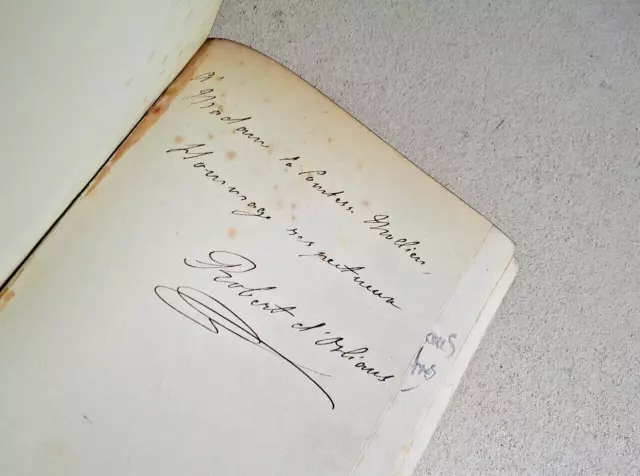 A
Madame la Comtesse Mollien,
Hommage respectueux
Robert d'Orléans